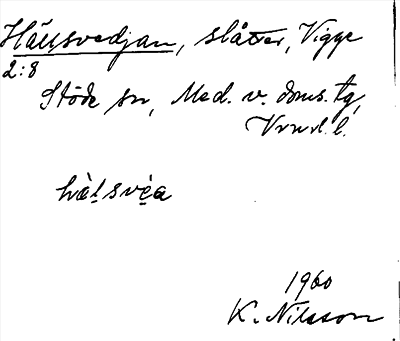 Hällsvedjan, slåtter, Vigge
2:8
Stöde sn, Med. v. doms. tg,
Vrnrl. l.
1960
K. Nilsson